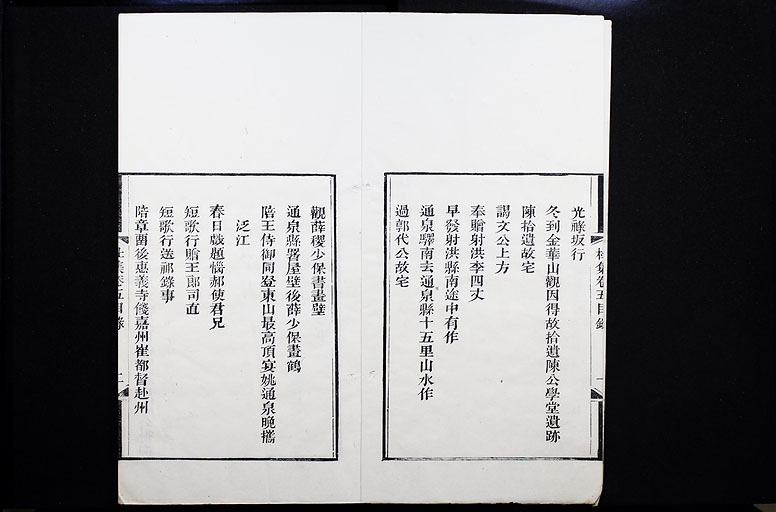 光祿坂行
冬到金華山觀因得故拾遺陳公學堂遺跡
陳拾遺故宅
謁文公上方
奉贈射洪李四丈
早發射洪縣南途中有作
通泉驛南去通泉縣十五里山水作
過郭代公故宅
觀薛稷少保書畫壁
通泉縣署屋壁後薛少保畫鶴
陪王侍御同登東山最高頂宴姚通泉晚攜
泛江
春日戲題惱郝使君兄
短歌行贈王郎司直
短歌行送祁錄事
陪章留後惠義寺餞嘉州崔都督赴州